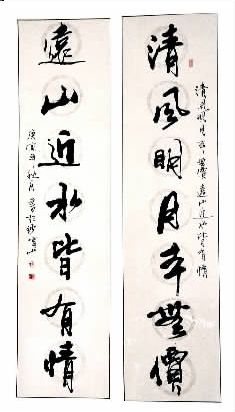 清風明月本無價
清風明月本無價遠山近水皆有情
遠山近水皆有情